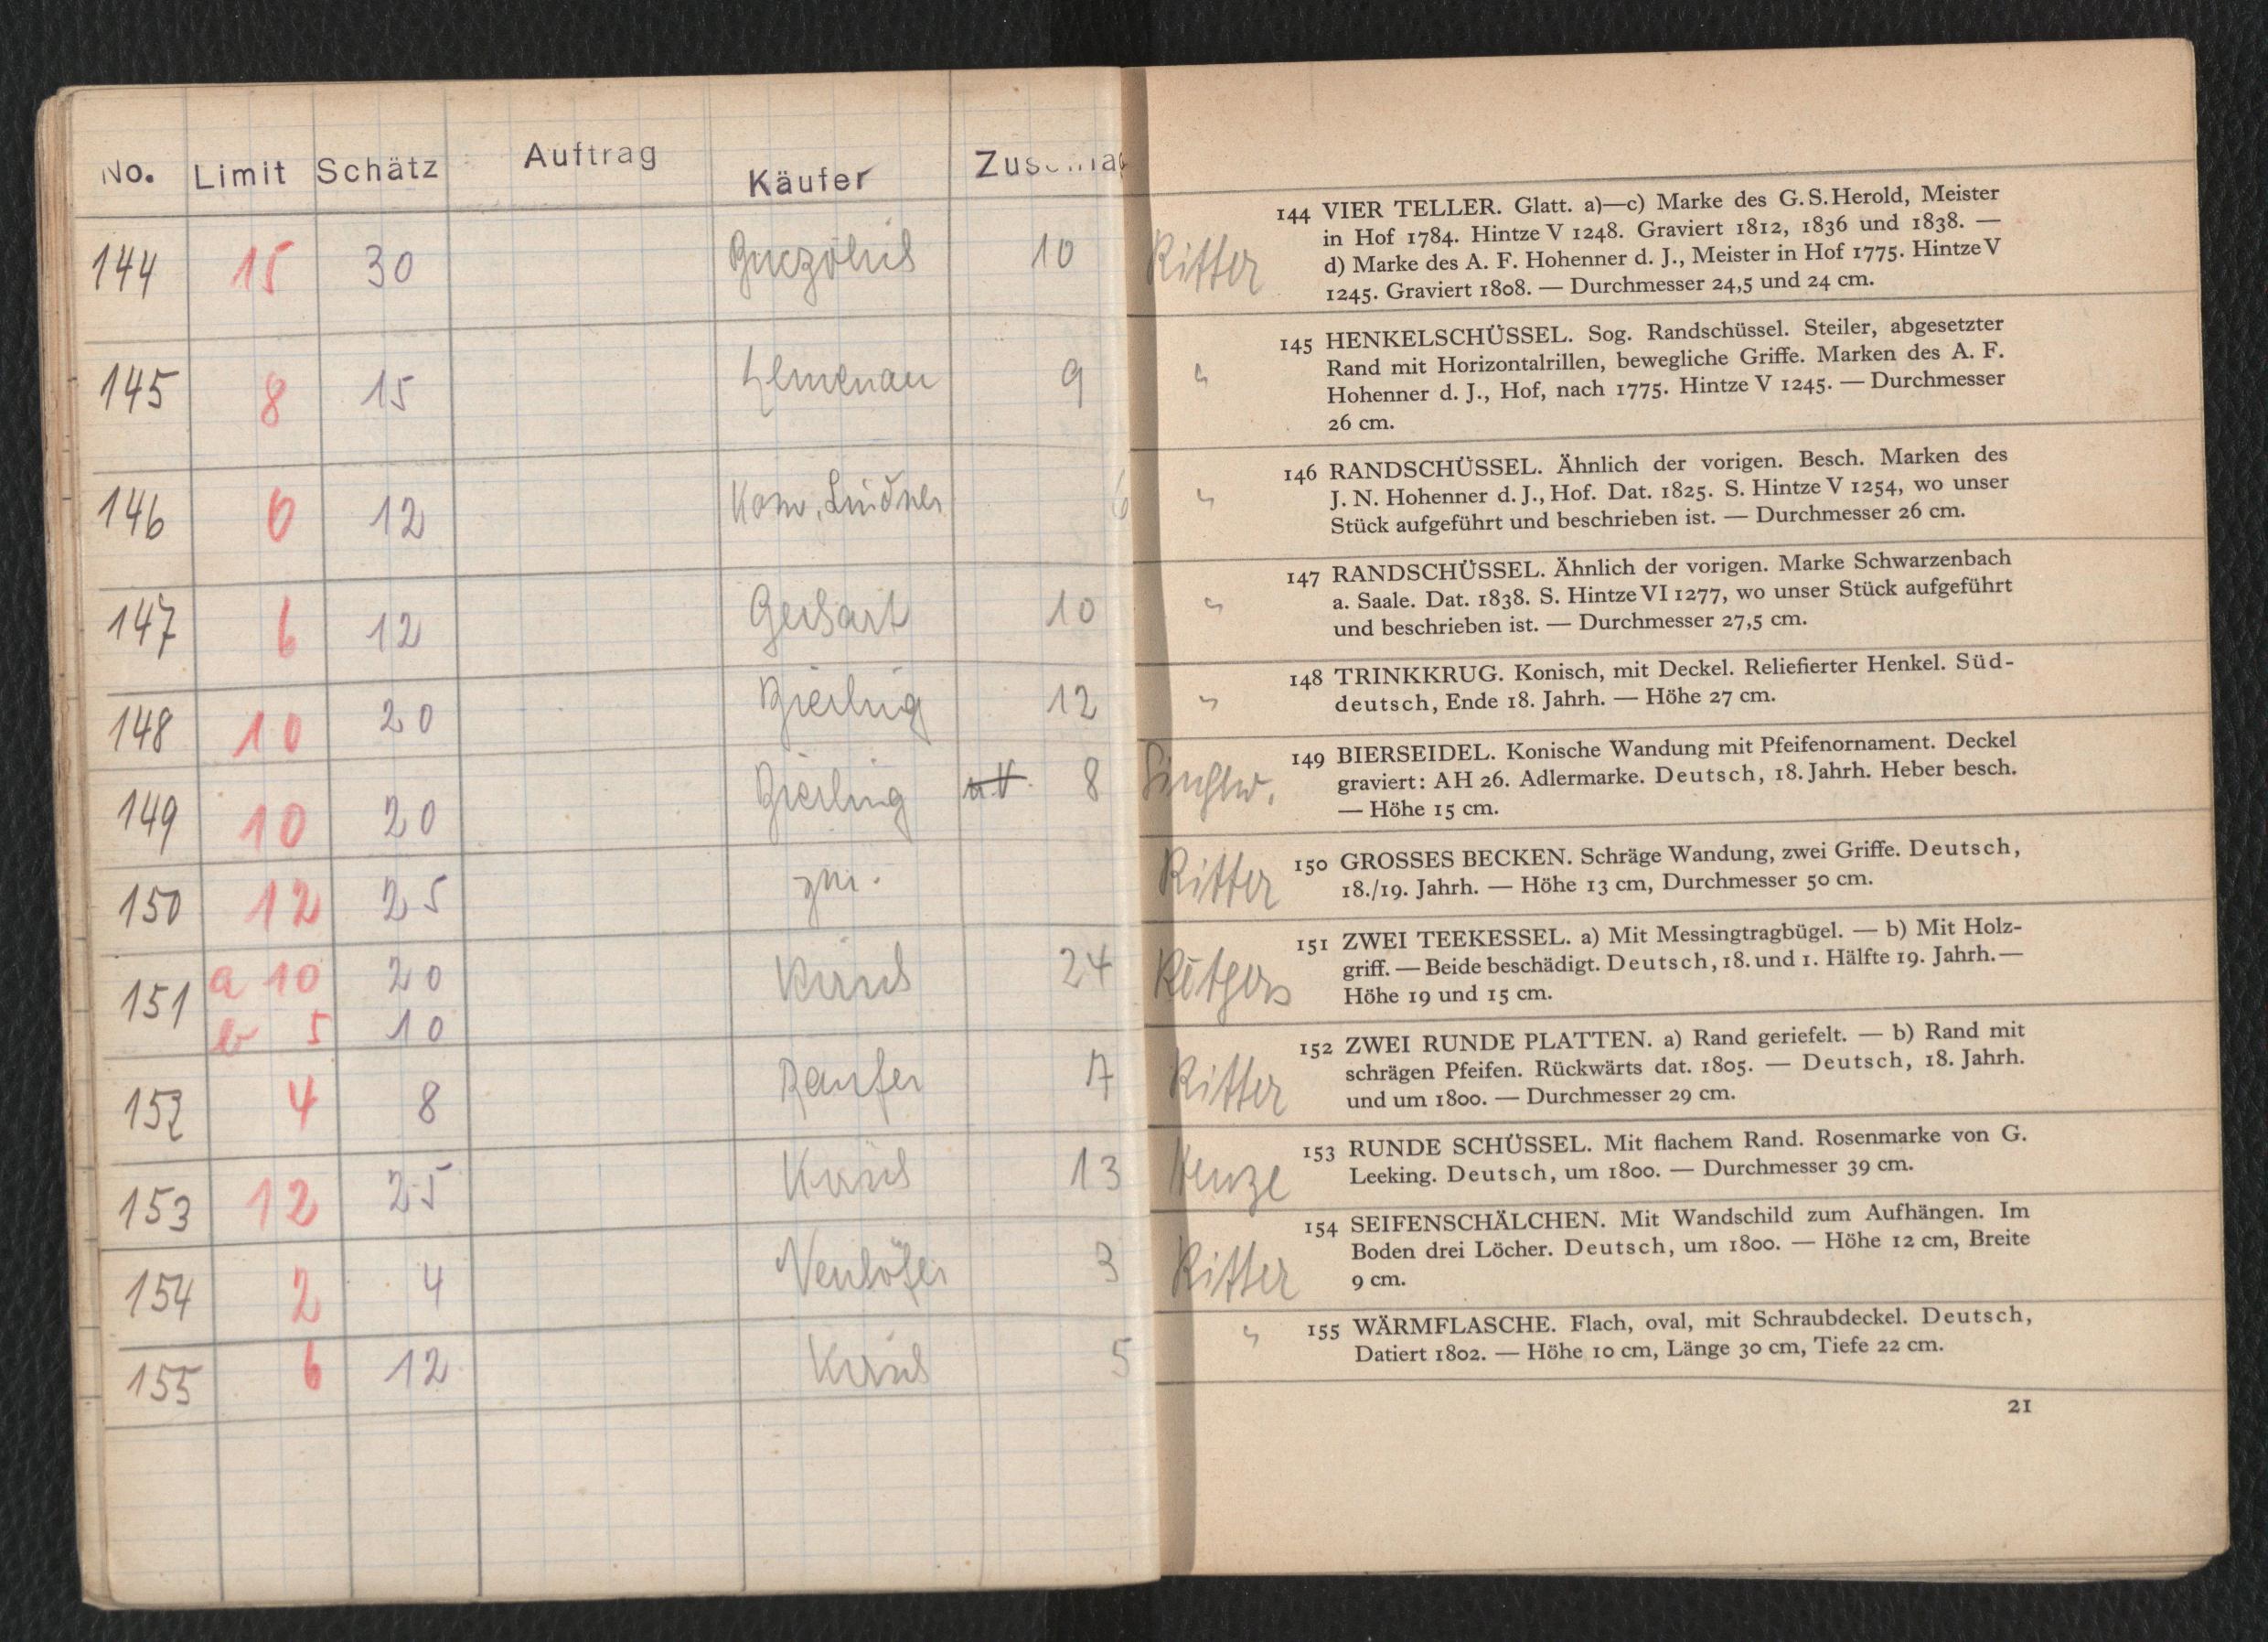 No. Limit Schätz Auftrag Käufer Zuschlag
144 15 30 10
145 8 15 9
146 6 12 Kom. Lindner 6
147 6 12 10
148 10 20 Bierling 12
149 10 20 Bierling 8
150 12 25 zur.
151 a 10 20 Kraus 24
b 5 10
152 4 8
153 12 25 Kraus 13
154 2 4 Neuhöfer 3
155 6 12 Kraus 5
Ritter
144 VIER TELLER. Glatt. a)—c) Marke des G. S. Herold, Meister
in Hof 1784. Hintze V 1248. Graviert 1812, 1836 und 1838. —
d) Marke des A. F. Hohenner d. J., Meister in Hof 1775. Hintze V
1245. Graviert 1808. — Durchmesser 24,5 und 24 cm.
"
145 HENKELSCHÜSSEL. Sog. Randschüssel. Steiler, abgesetzter
Rand mit Horizontalrillen, bewegliche Griffe. Marken des A. F.
Hohenner d. J., Hof, nach 1775. Hintze V 1245. — Durchmesser
26 cm.
"
146 RANDSCHÜSSEL. Ähnlich der vorigen. Besch. Marken des
J. N. Hohenner d. J., Hof. Dat. 1825. S. Hintze V 1254, wo unser
Stück aufgeführt und beschrieben ist. — Durchmesser 26 cm.
"
147 RANDSCHÜSSEL. Ähnlich der vorigen. Marke Schwarzenbach
a. Saale. Dat. 1838. S. Hintze VI 1277, wo unser Stück aufgeführt
und beschrieben ist. — Durchmesser 27,5 cm.
"
148 TRINKKRUG. Konisch, mit Deckel. Reliefierter Henkel. Süd-
deutsch, Ende 18. Jahrh. — Höhe 27 cm.
149 BIERSEIDEL. Konische Wandung mit Pfeifenornament. Deckel
graviert: AH 26. Adlermarke. Deutsch, 18. Jahrh. Heber besch.
— Höhe 15 cm.
Ritter
150 GROSSES BECKEN. Schräge Wandung, zwei Griffe. Deutsch,
18./19. Jahrh. — Höhe 13 cm, Durchmesser 50 cm.
Rötgers
151 ZWEI TEEKESSEL. a) Mit Messingtragbügel. — b) Mit Holz-
griff. — Beide beschädigt. Deutsch, 18. und 1. Hälfte 19. Jahrh. —
Höhe 19 und 15 cm.
Ritter
152 ZWEI RUNDE PLATTEN. a) Rand geriefelt. — b) Rand mit
schrägen Pfeifen. Rückwärts dat. 1805. — Deutsch, 18. Jahrh.
und um 1800. — Durchmesser 29 cm.
153 RUNDE SCHÜSSEL. Mit flachem Rand. Rosenmarke von G.
Leeking. Deutsch, um 1800. — Durchmesser 39 cm.
Ritter
154 SEIFENSCHÄLCHEN. Mit Wandschild zum Aufhängen. Im
Boden drei Löcher. Deutsch, um 1800. — Höhe 12 cm, Breite
9 cm.
"
155 WÄRMFLASCHE. Flach, oval, mit Schraubdeckel. Deutsch,
Datiert 1802. — Höhe 10 cm, Länge 30 cm, Tiefe 22 cm.
21